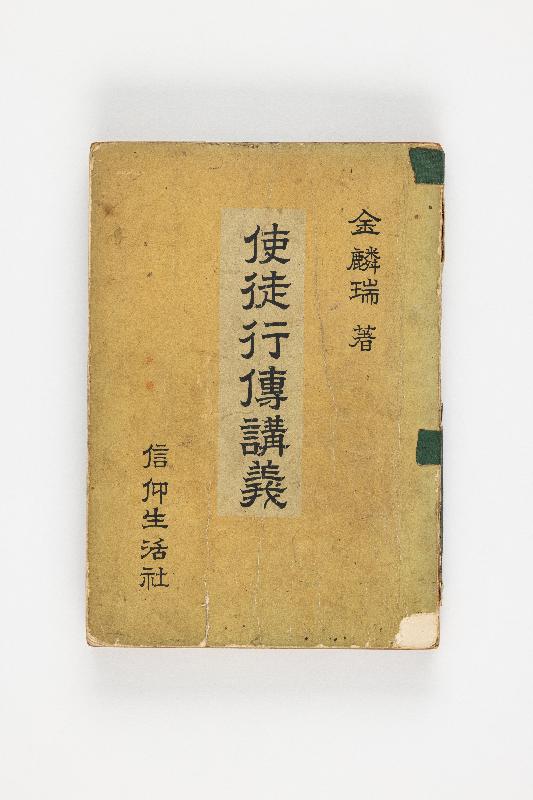 金麟瑞 著
使徒行傳講義
信仰生活社